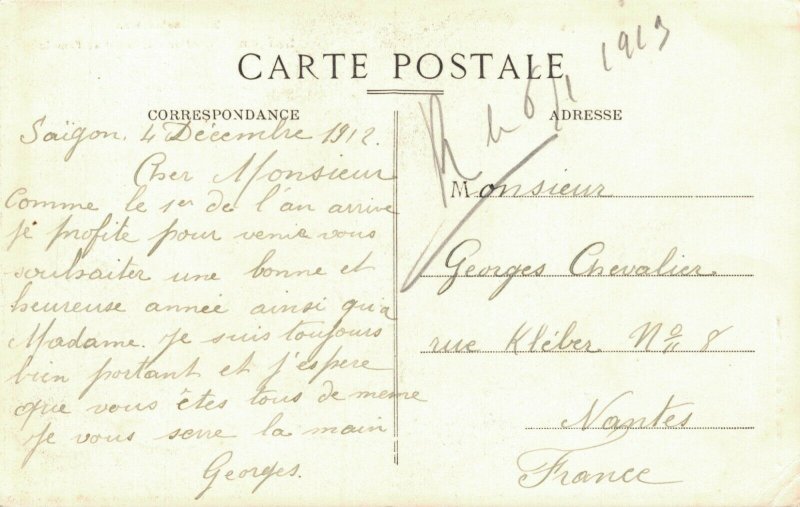 CARTE POSTALE
R le 8/1 1913
CORRESPONDANCE
Saïgon. 4 Décembre 1912.
Cher Monsieur
Comme le 1er de l'an arrive
je profite pour venir vous
souhaiter une bonne et
heureuse année ainsi qu'a
Madame. Je suis toujours
bien portant et j'espere
que vous êtes tous de meme
Je vous serre la main
Georges.
ADRESSE
Monsieur
Georges Chevalier
rue Kléber No 8
Nantes
France